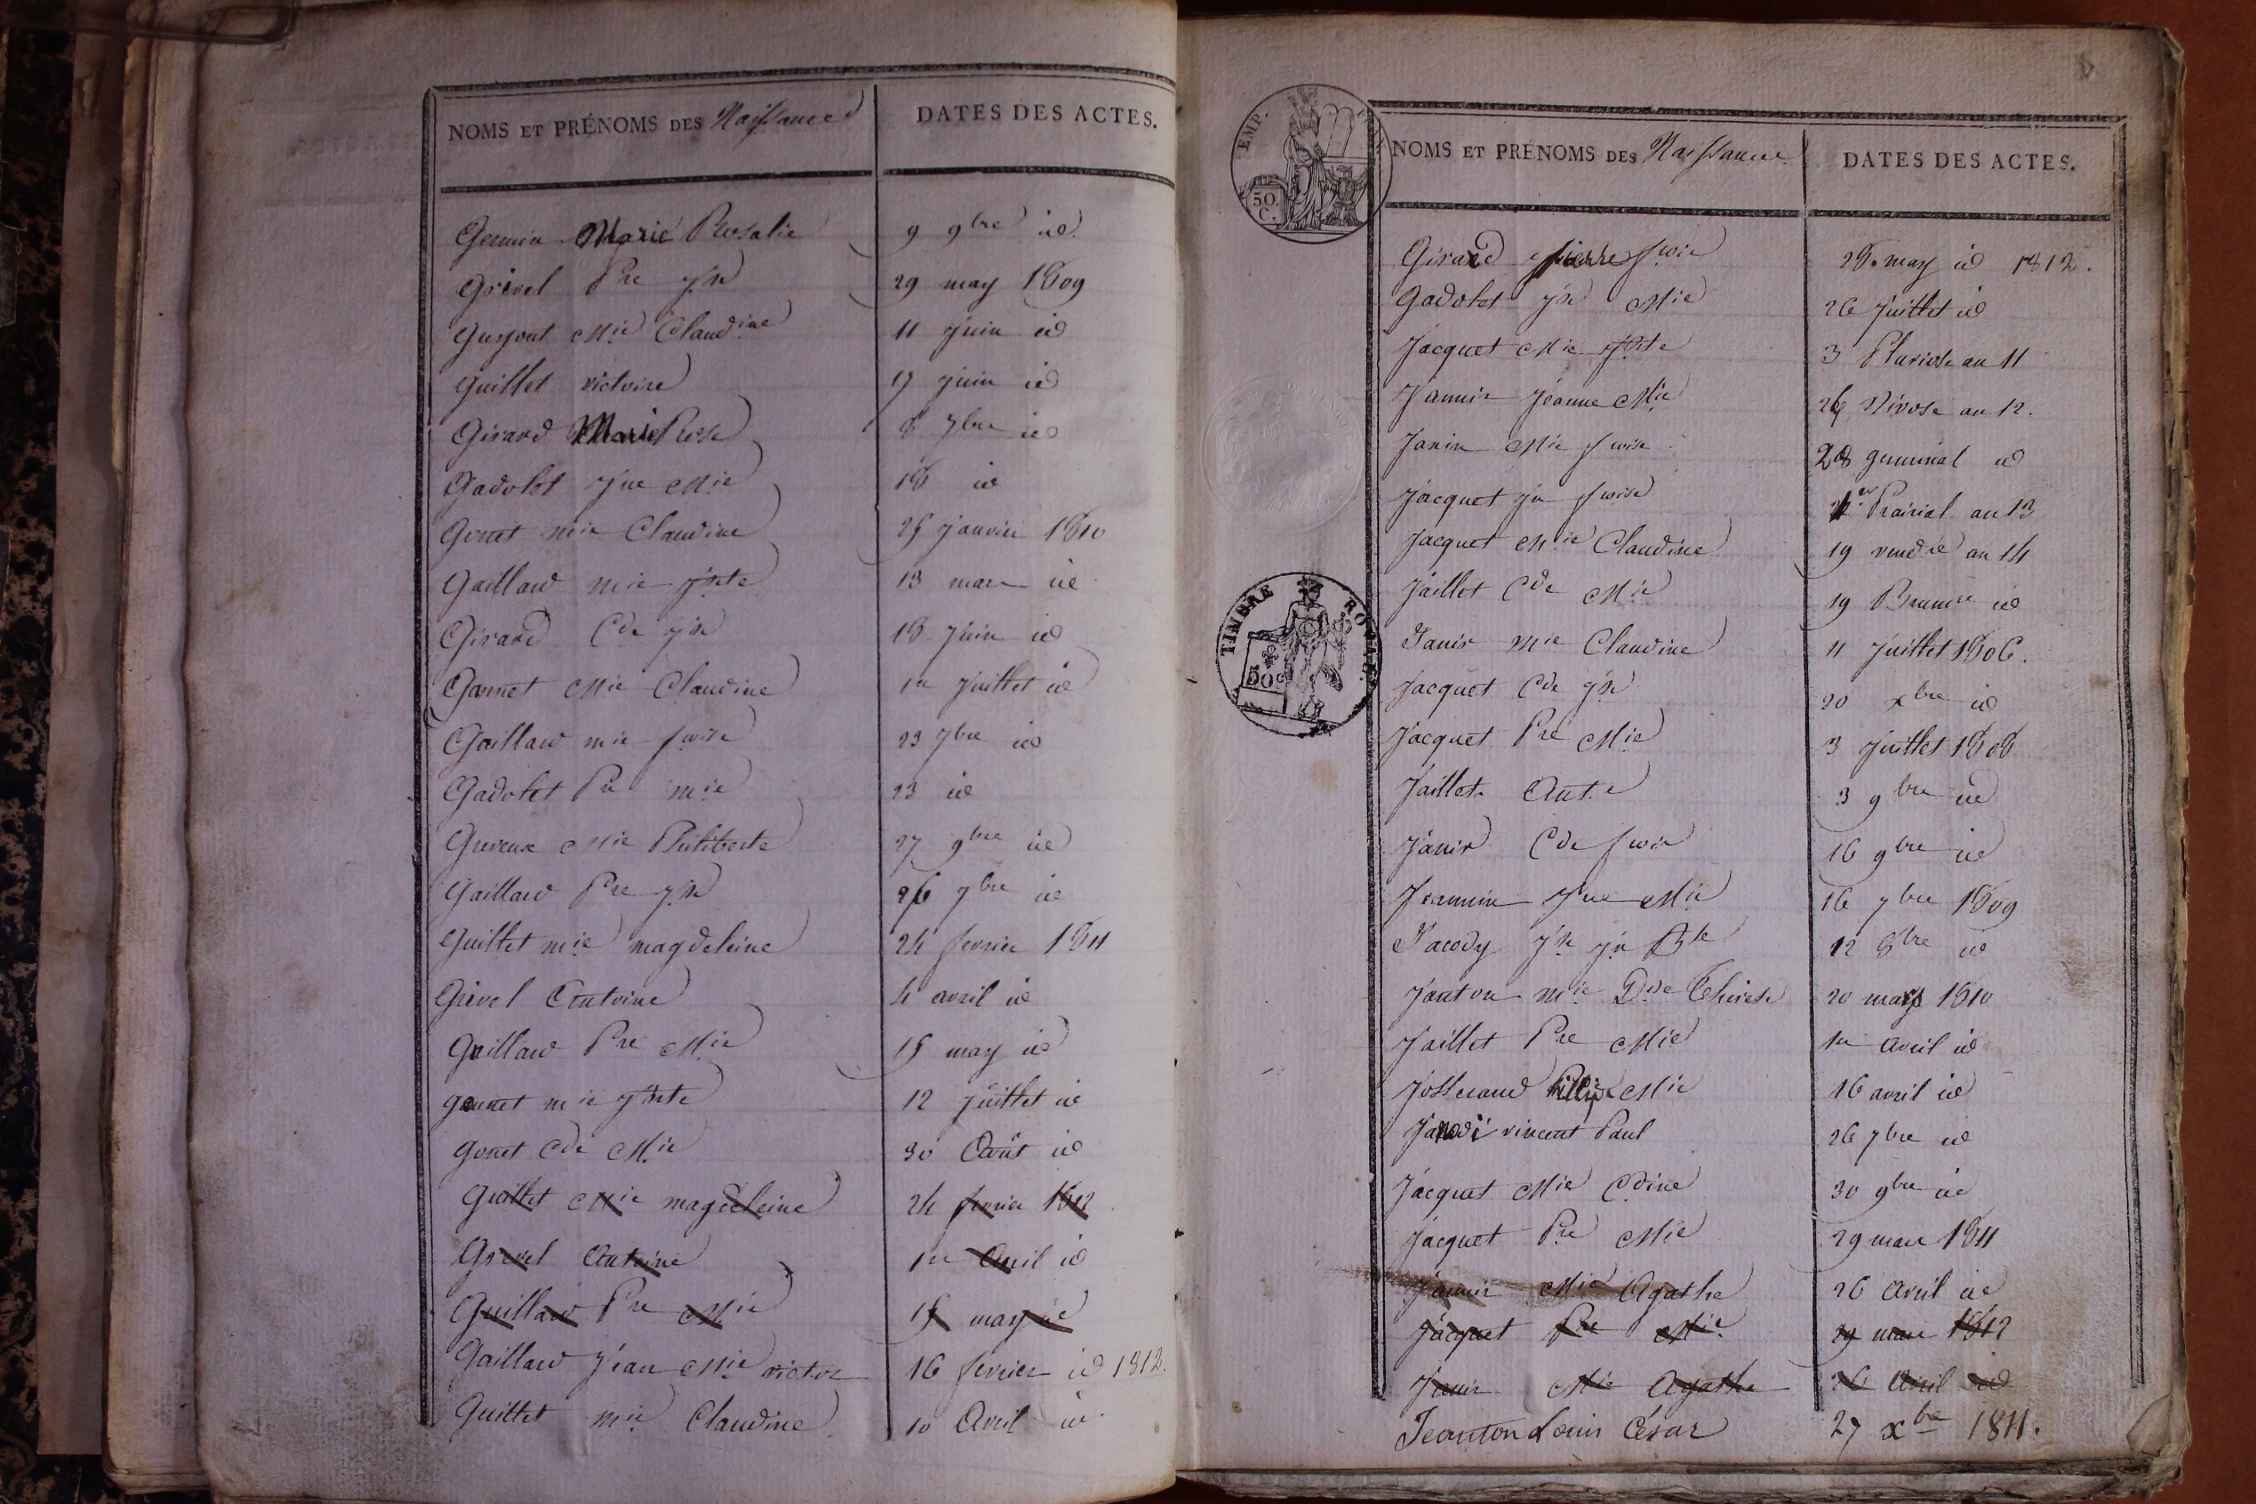 NOMS ET PRÉNOMS DES Naissances DATES DES ACTES.
Germin Marie Rosalie 9 9bre id
Grivel Pre Jh 29 may 1809
Guyout Mie Claudine 11 juin id
Guillet victoire 17 juin id
Girard Marie Rose 8 7bre id
Gadolet Jne Mie 18 id
Gonet mie Claudine 25 janvier 1810
Gaillard mie 13 mars id
Girard Cde Jh 18 juin id
Gonnet Mie Claudine 1er juillet id
Gaillard mie fsoise 23 7bre id
Gadolet Pre mie 23 id
Mie Philiberte 27 9bre id
Gaillard Pre Jh 26 7bre id
Guillet mie magdeleine 24 fevrier 1811
Grivel Antoine 4 avril id
Guillard Pre Mie 15 may id
gonnet mie 12 juillet id
gonet Cde Mie 30 Août id
Guillet Mie magdeleine 24 fevrier 1812
Grivel Antoine 1er Avril id
Guillard Pre Mie 15 may id
Gaillard Jean Mie victor 16 fevrier id 1812.
Guillet mie Claudine 10 Avril id
EMP.
50. C.
NOMS ET PRÉNOMS DES Naissance DATES DES ACTES.
Girard pierre fsois 28 may id 1812.
Gadolet Jh Mie 26 juillet id
Jacquet Mie 3 Pluviose an 11
Jannin Jeanne Mie 26 Nivose an 12.
Janin Mie fsoise 28 germinal id
Jacquet Jn fsoise 1er Prairial an 13
Jacquet Mie Claudine 19 vendre an 14
Jaillet Cde Mie 19 Brumre id
TIMBRE ROYAL.
50c
Janin Mie Claudine 11 juillet 1806.
Jacquet Cde Jh 20 xbre id
Jacquet Pre Mie 3 juillet 1808
Jaillet Ant.e 3 9bre id
Janin Cde fsois 16 9bre id
Jeannin Jne Mie 16 7bre 1809
Jacody Jh Jn Bte 12 8bre id
Janton mie Thérèse 20 mars 1810
Jaillet Pre Mie 1er avril id
Josserand Mie 16 avril id
vincent Paul 26 7bre id
Jacquet Mie Cdine 30 9bre id
Jacquet Pre Mie 29 mars 1811
Janin Mie Agathe 26 Avril id
Jacquet Pre Mie 29 mars 1812
Janin Mie Agathe 26 Avril id
Jeanton Louis César 27 xbre 1811.